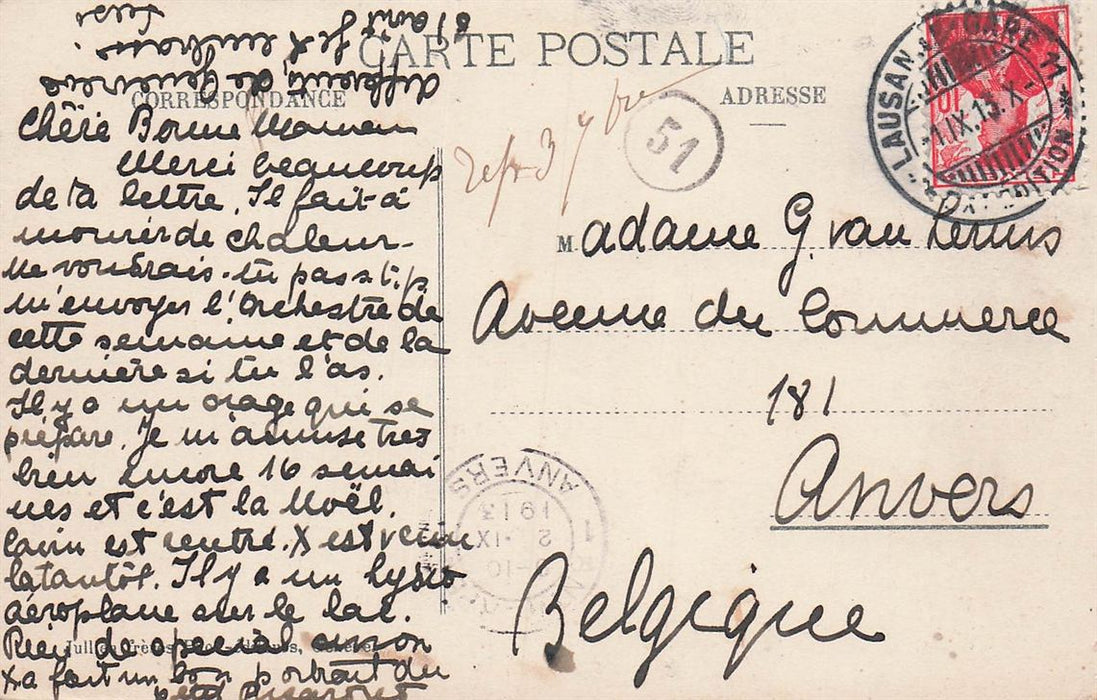 CARTE POSTALE
CORRESPONDANCE
ADRESSE
Chère Bonne Maman
Merci beaucoup
de ta lettre. Il fait à
mourir de chaleur.
Ne voudrais-tu pas s.t.p.
m'envoyer l'orchestre de
cette semaine et de la
dernière si tu l'as.
Il y a un orage qui se
prépare. Je m'amuse très
bien encore 16 semai
nes et c'est la Noël.
est rentré. X est venu
tantôt. Il y a un hydro
aéroplane sur le lac.
Rien de spécial sinon
X a fait un bon portrait du
petit
de Genevrier
Je t'embrasse
51
LAUSANNE GARE
1.IX.13.X-
EXPEDITION
10
Madame G. van
Avenue du Commerce
181
Anvers
Belgique
ANVERS
1913
2 IX
1
Jullien Frères, Genève